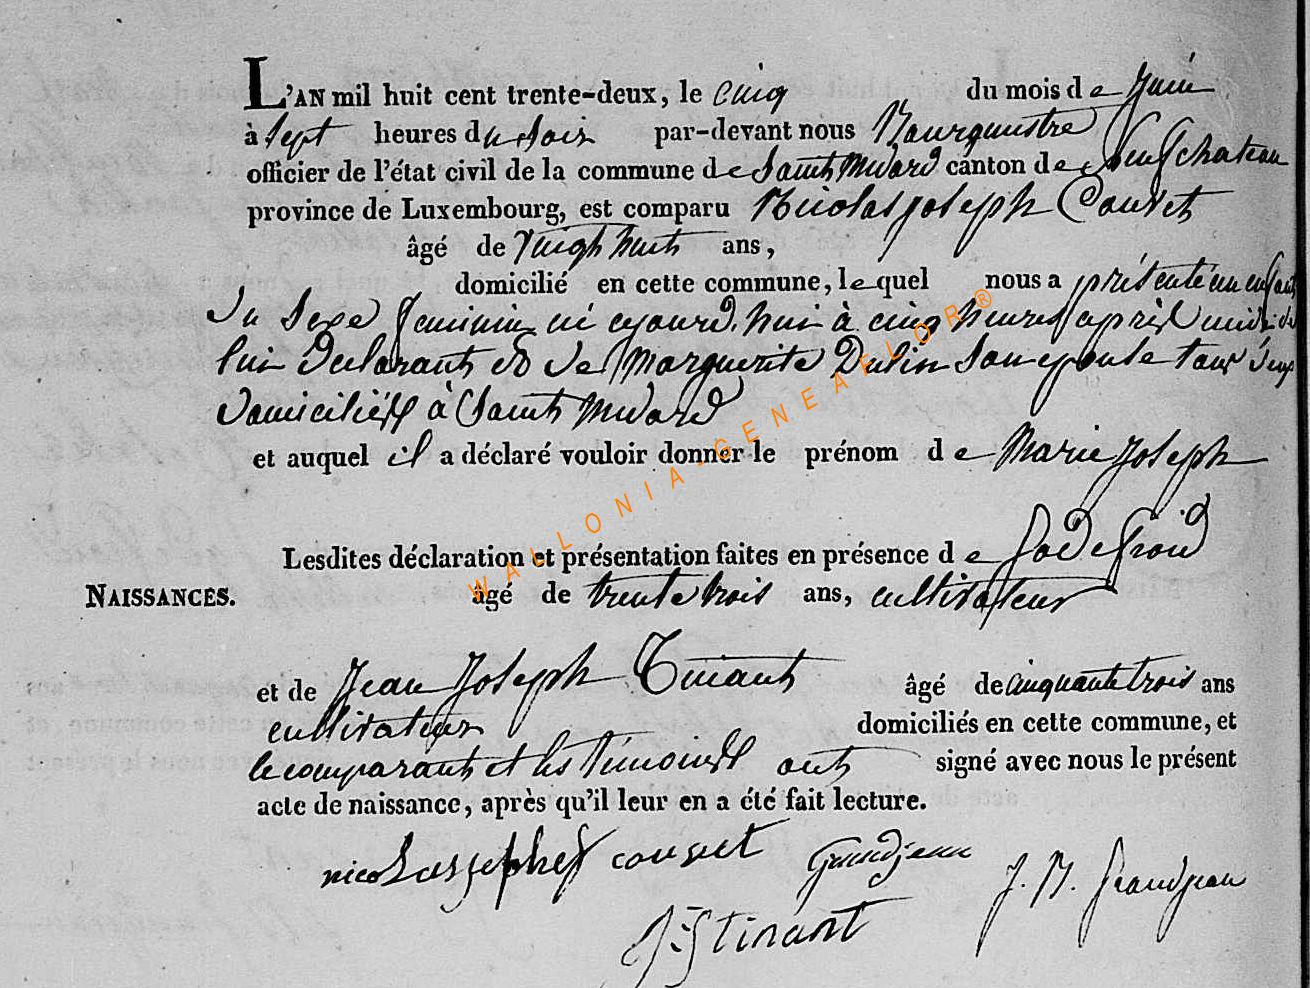 L'AN mil huit cent trente-deux, le cinq du mois de Juin
à Sept heures du Soir par-devant nous Bourguestre
officier de l'état civil de la commune de Saint Médard canton de Neufchateau
province de Luxembourg, est comparu Nicolas joseph Couset
âgé de Vingt huit ans,
domicilié en cette commune, lequel nous a présenté un enfant
du Sexe Feminin né cejourd'hui à cinq heures après midi de
lui Déclarant et de Marguerite Dulin Son epouse tous deux
Domiciliés à Saint Médard
et auquel il a déclaré vouloir donner le prénom de Marie Joseph
Lesdites déclaration et présentation faites en présence de Godefroid
NAISSANCES. âgé de trente trois ans, cultivateur
et de Jean Joseph Tinant âgé de cinquante trois ans
cultivateur domiciliés en cette commune, et
le comparant et les Témoins ont signé avec nous le présent
acte de naissance, après qu'il leur en a été fait lecture.
couset Grandjean J. N. Grandjean
J-J tinant
WALLONIA-GENEAFLOR®